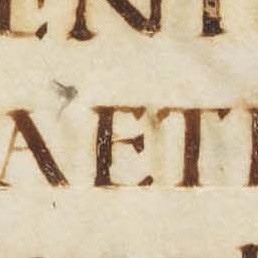 ENT
AETI